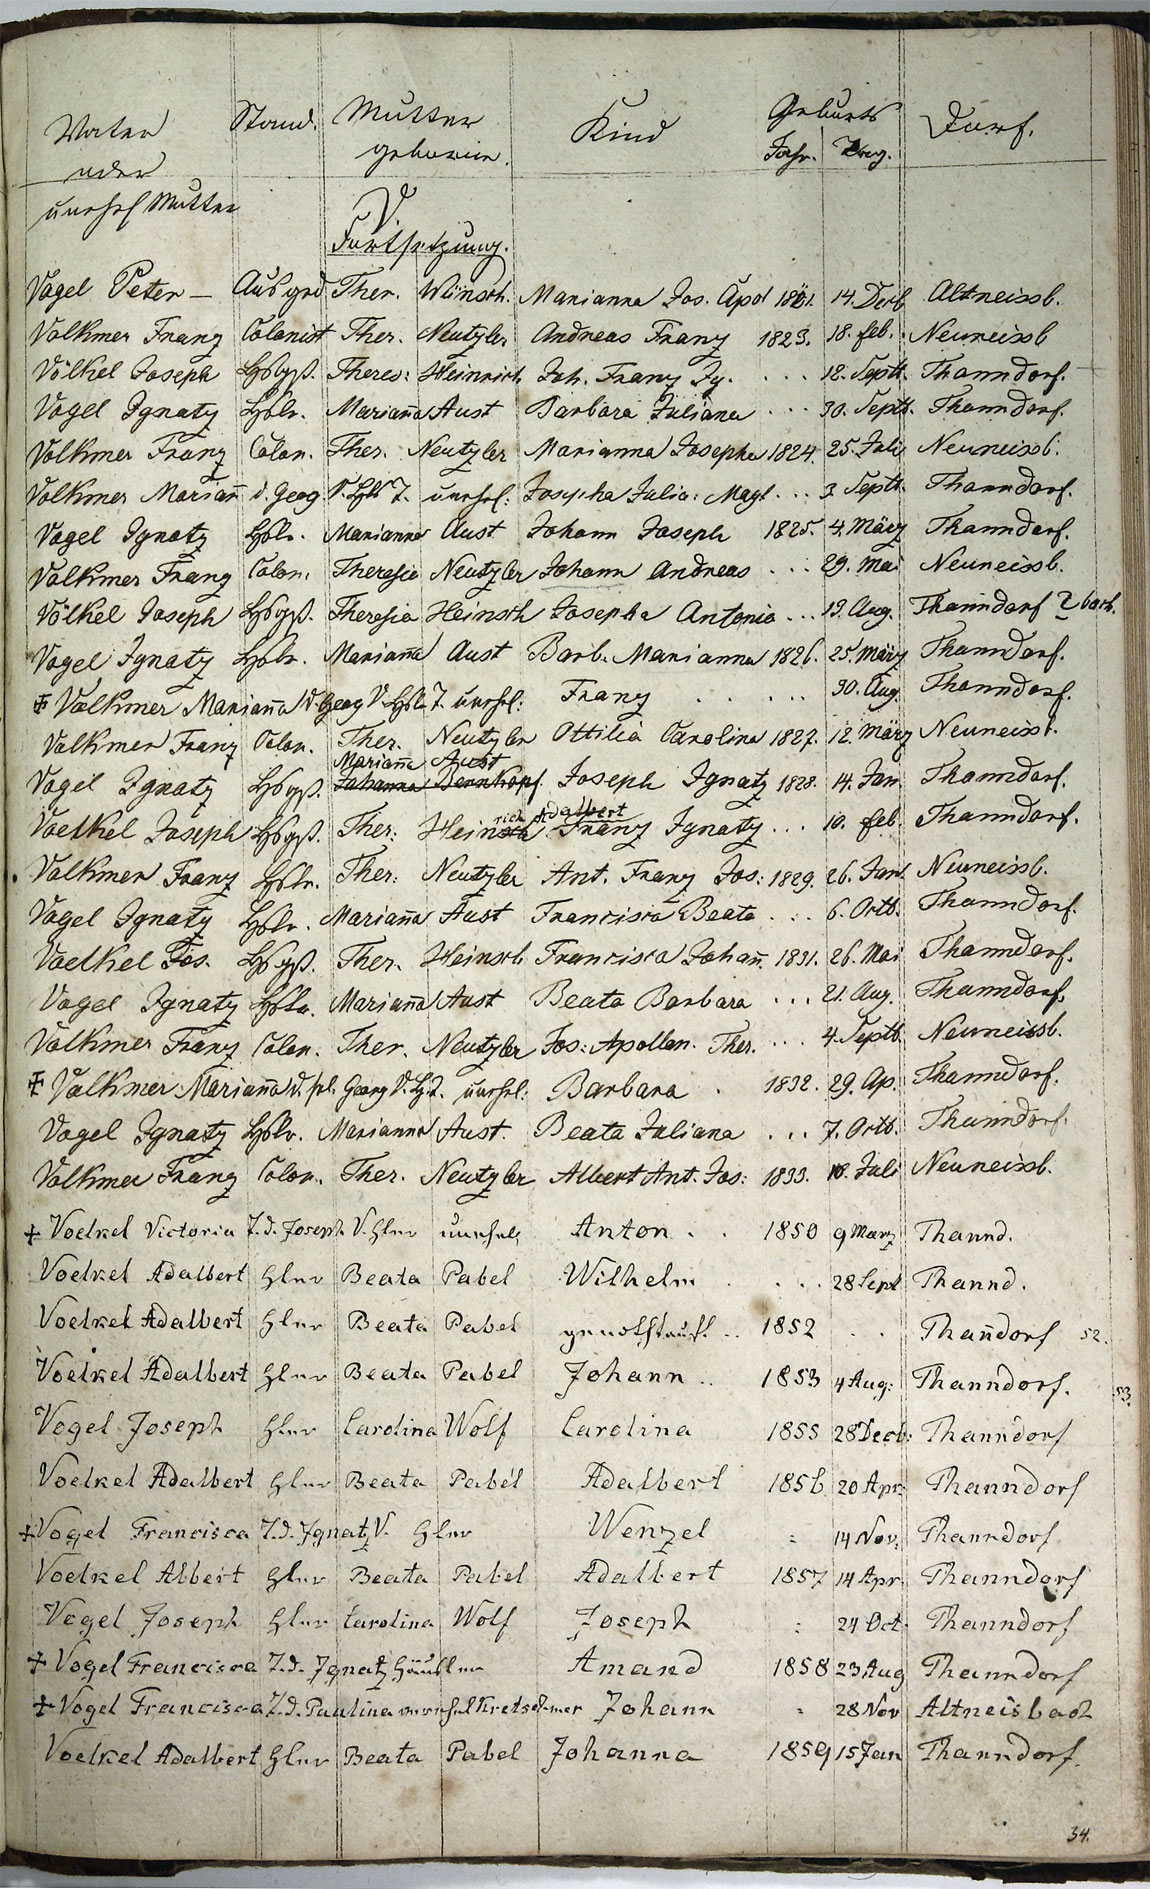 Vater Stand. Mutter Kind Geburts Dorf.
oder geborne. Jahr. Tag.
unehel Mutter
V.
Fortsetzung.
Vogel Peter – Ausged Ther. Wünsch. Marianna Jos. Apol 1821. 14. Decb Altneissb.
Volkmer Franz Colonist Ther. Neutzler Andreas Franz 1823. 18. feb. Neuneissb
Völkel Joseph Hsbgß. Theres: Heinrich Joh. Franz Ig. . . . 12. Septb. Thanndorf.
Vogel Ignatz Hslr. Mariaña Aust Barbara Juliana . . . 30. Septb. Thanndorf.
Volkmer Franz Colon. Ther. Neutzler Marianna Josepha 1824. 25. Juli Neuneissb.
Volkmer Mariañ d. Georg V. Hsl T. unehel: Josepha Julia: Magl . . . 3 Septb. Thanndorf.
Vogel Ignatz Hslr. Marianna Aust Johann Joseph 1825. 4. März Thanndorf.
Volkmer Franz Colon. Theresia Neutzler Johann Andreas . . . 29. Mai Neuneissb.
Völkel Joseph Hsbgß. Theresia Heinrich Josepha Antonia . . . 19. Aug. Thanndorf
Vogel Ignatz Hslr. Mariaña Aust Barb. Marianna 1826. 25. März Thanndorf.
✠ Volkmer Mariaña d. Georg V. Hsl T. unehel: Franz . . . . . 30. Aug. Thanndorf.
Volkmer Franz Colon. Ther. Neutzler Ottilia Carolina 1827. 12. März Neuneissb.
Mariaña Aust
Vogel Ignatz Hsbgß. Johanna Bernhopf Joseph Ignatz 1828. 14. Jan. Thanndorf.
rich Adalbert
Voelkel Joseph Hsbgß. Ther: Heinsch Franz Ignatz . . . 10. feb. Thanndorf.
Volkmer Franz Hslr. Ther: Neutzler Ant. Franz Jos: 1829. 26. Jan. Neuneissb.
Vogel Ignatz Hslr. Mariaña Aust Francisca Beata . . . 6. Octb. Thanndorf.
Voelkel Jos. Hsbgß. Ther. Heinsch Francisca Johañ. 1831. 26. Mai Thanndorf.
Vogel Ignatz Hslr. Mariaña Aust Beata Barbara . . . 21. Aug. Thanndorf.
Volkmer Franz Colon. Ther. Neutzler Jos: Apollon. Ther. . . . 4. Septb. Neuneissb.
✠ Volkmer Mariaña d. sel. Georg V. H. T. unehel: Barbara . 1832. 29. Ap. Thanndorf.
Vogel Ignatz Hslr. Marianna Aust. Beata Juliana . . . 7. Octb. Thanndorf.
Volkmer Franz Colon. Ther. Neutzler Albert Ant. Jos: 1833. 18. Juli Neuneissb.
+ Voelkel Victoria T. d. Joseph V. Hslr unehel Anton . . 1850 9 März Thannd.
Voelkel Adalbert Hslr Beata Pabel Wilhelm . . . . 28 Sept Thannd.
Voelkel Adalbert Hslr Beata Pabel genothtauft .. 1852 . . Thañdorf 52.
Voelkel Adalbert Hslr Beata Pabel Johann .. 1853 4 Aug: Thanndorf. 53.
Vogel Joseph Hslr Carolina Wolf Carolina 1855 28 Decb: Thanndorf
Voelkel Adalbert Hslr Beata Pabel Adalbert 1856 20 Apr: Thanndorf
+ Vogel Francisca T. d. Ignatz V. Hslr Wenzel : 14 Nov. Thanndorf
Voelkel Albert Hslr Beata Pabel Adalbert 1857 14 Apr. Thanndorf
Vogel Joseph Hslr Carolina Wolf Joseph : 24 Oct. Thanndorf
+ Vogel Francisca T. d. Ignatz Häusler Amand 1858 23 Aug Thanndorf
+ Vogel Francisca T. d. Paulina unehel Kretschmer Johann : 28 Nov Altneisbach
Voelkel Adalbert Hslr Beata Pabel Johanna 1859 15 Jan Thanndorf.
34.